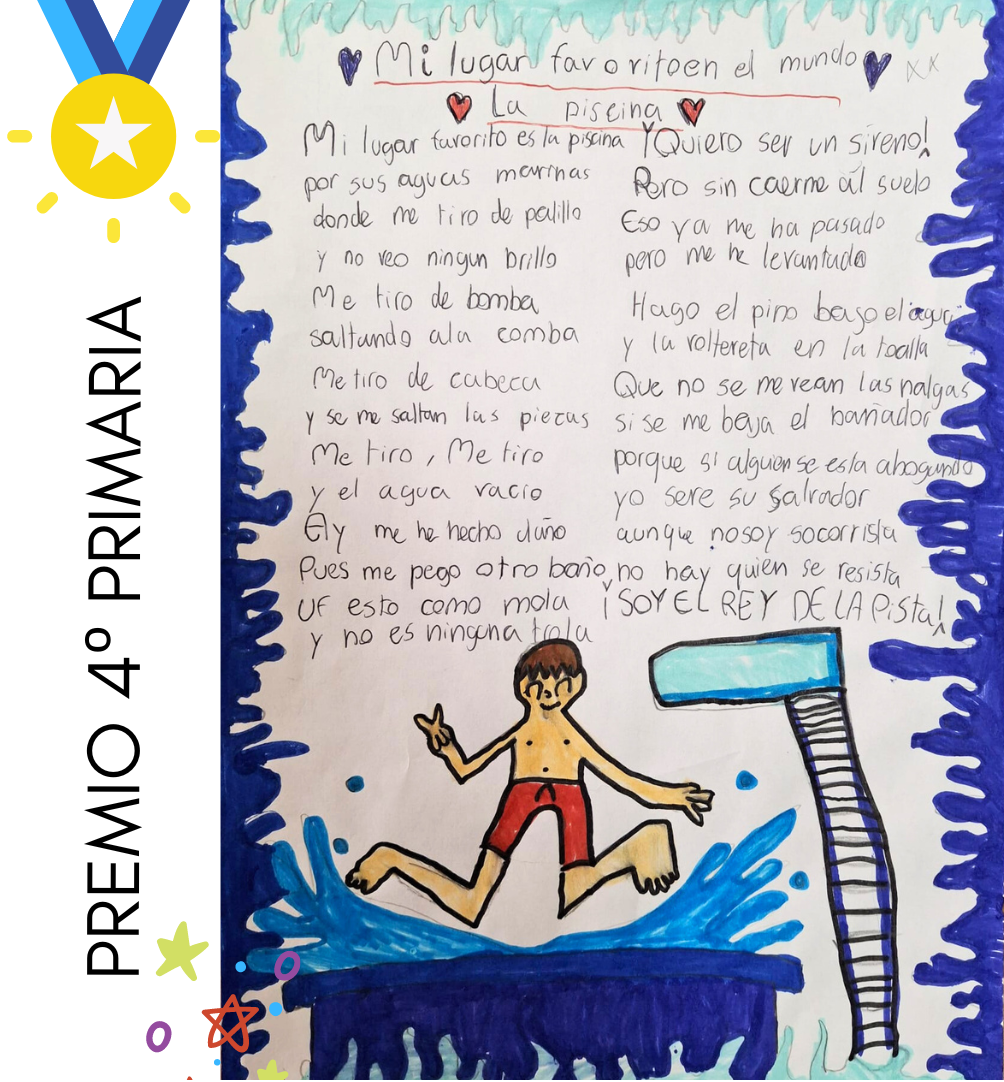 PREMIO 4º PRIMARIA
Mi lugar favorito en el mundo
La piscina
Mi lugar favorito es la piscina
por sus aguas marinas
donde me tiro de palillo
y no veo ningun brillo
Me tiro de bomba
saltando ala comba
Me tiro de cabeca
y se me saltan las piezas
Me tiro, Me tiro
y el agua vacio
Ay me he hecho daño
Pues me pego otro baño
UF esto como mola
y no es ninguna trola
¡Quiero ser un sireno!
Pero sin caerme al suelo
Eso ya me ha pasado
pero me he levantado
Hago el pino bajo el agua
y la voltereta en la toalla
Que no se me vean las nalgas
si se me baja el bañador
porque si alguien se esta ahogando
yo sere su salvador
aunque no soy socorrista
no hay quien se resista
¡SOY EL REY DE LA Pista!